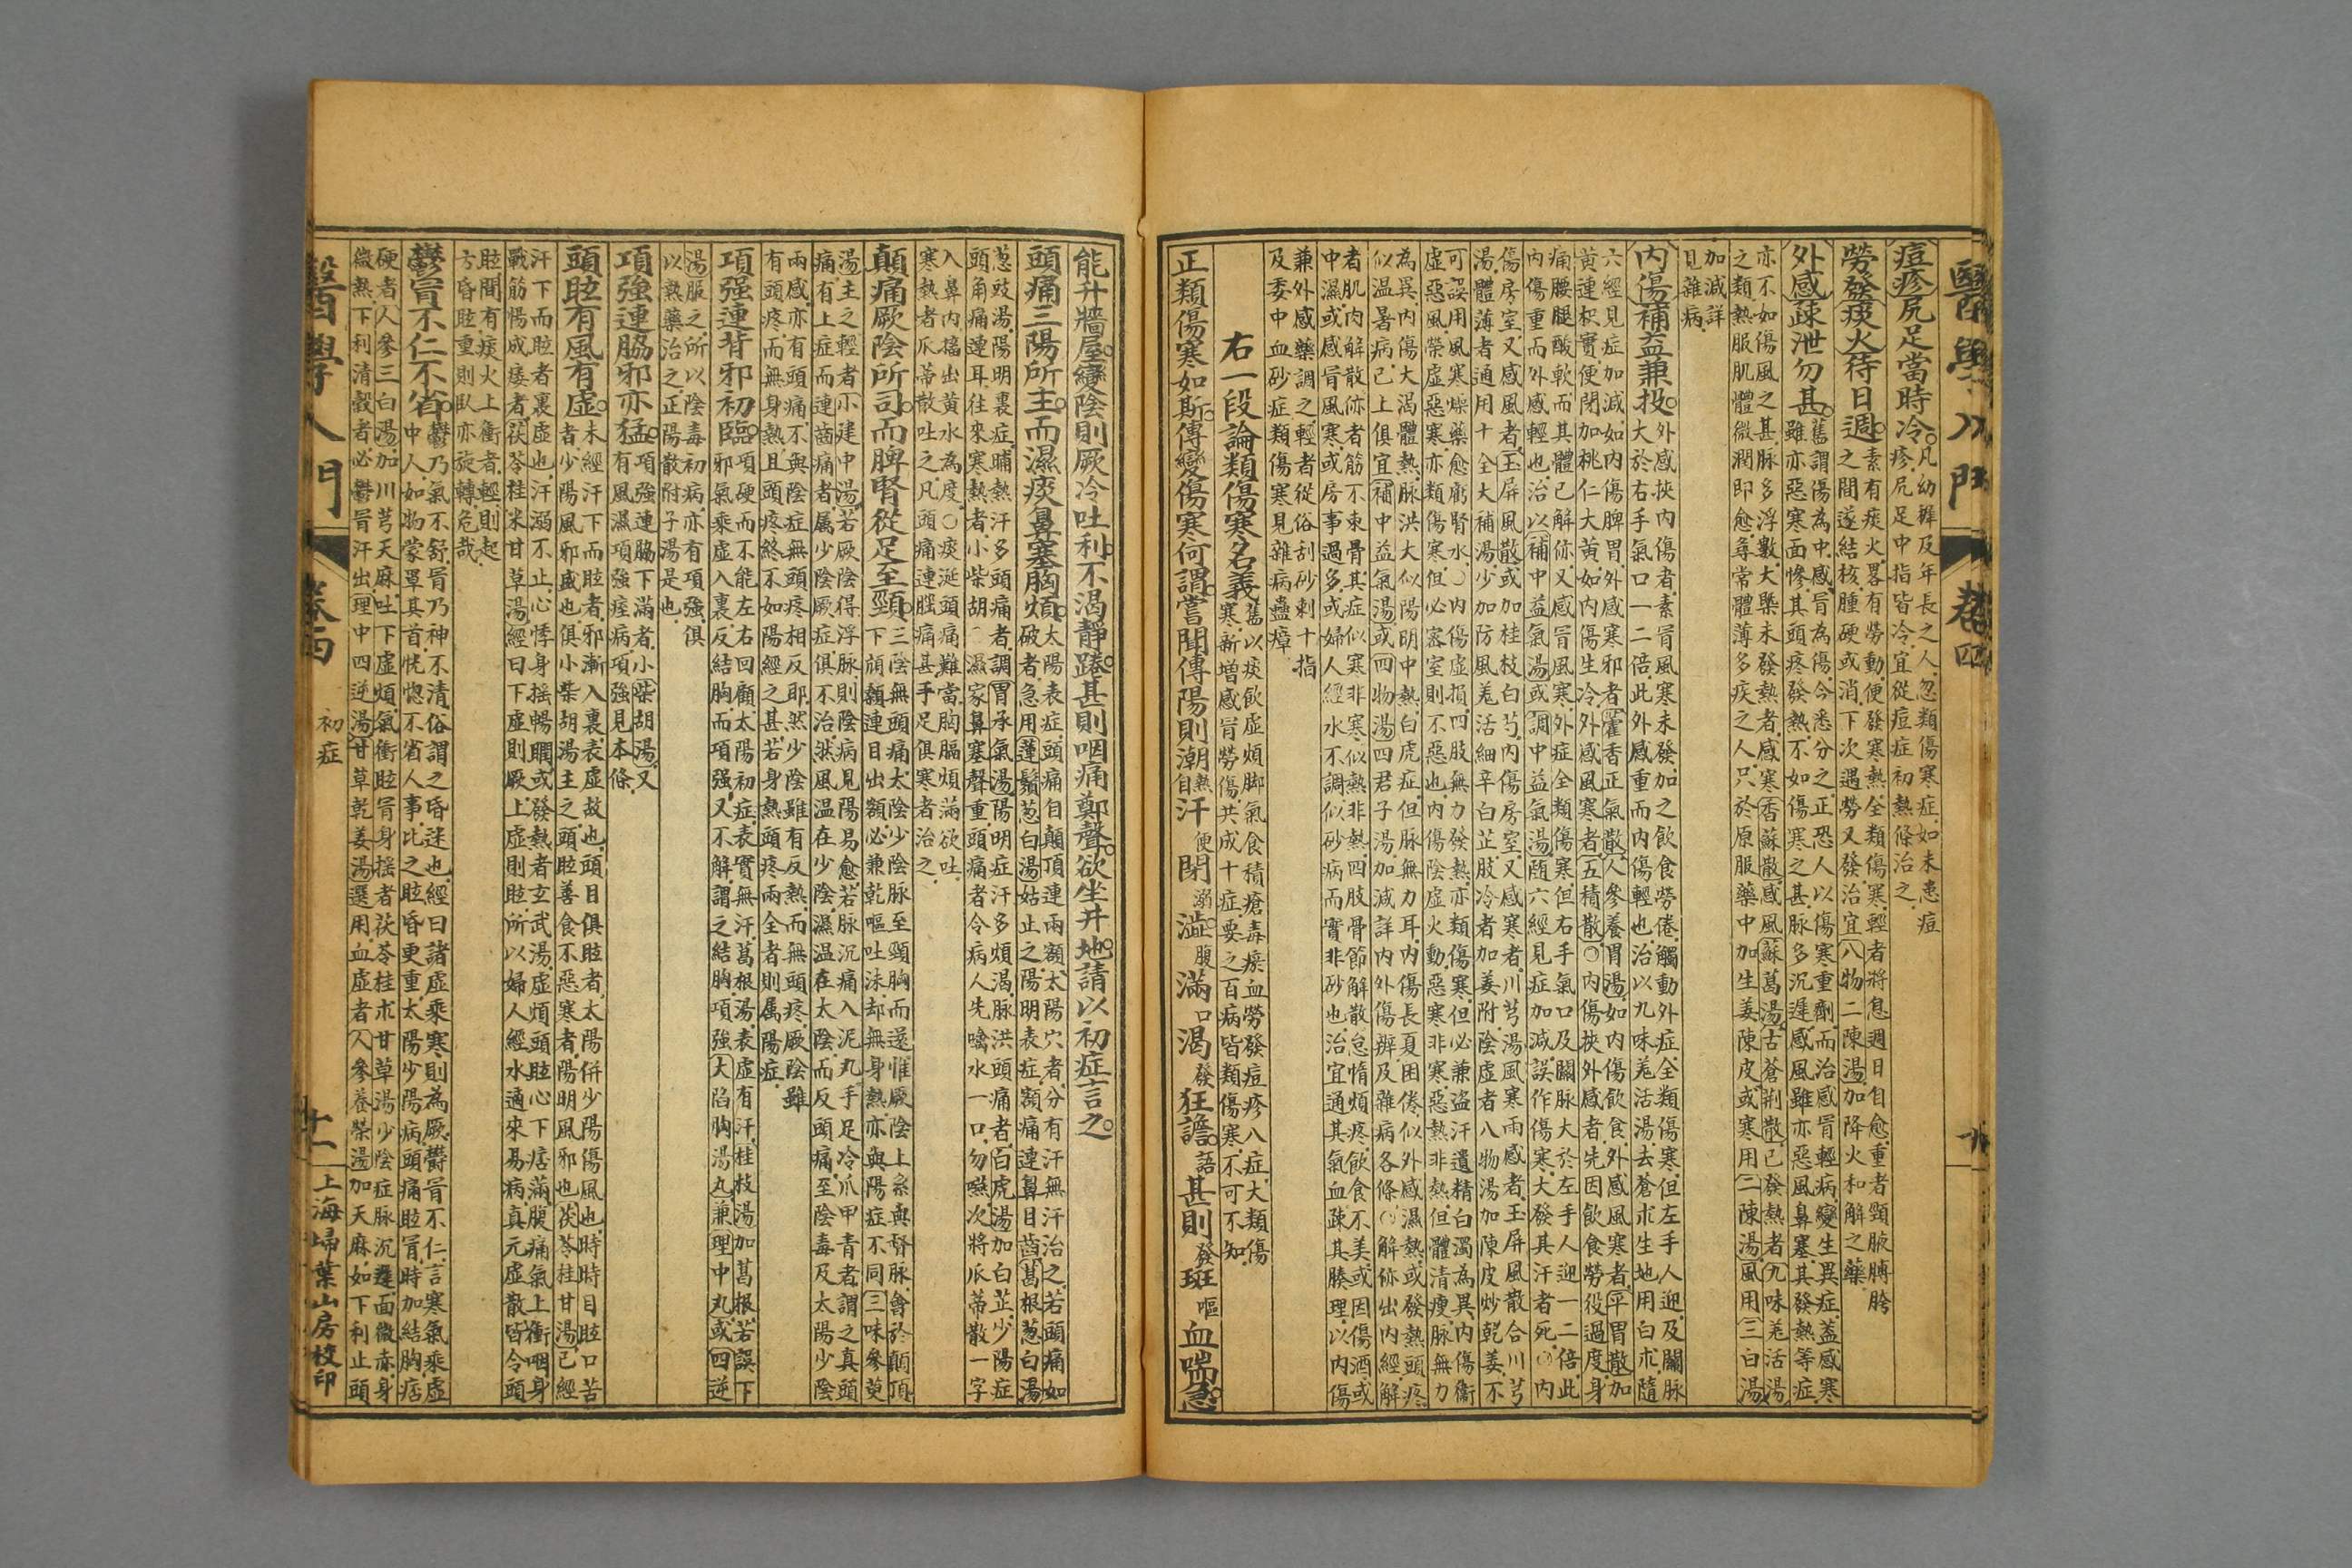 醫學入門
卷四
九
痘疹尻足當時冷。
凡幼稚及年長之人。忽類傷寒症。如未患痘
疹。尻足中指皆冷。宜從痘症初熱條治之。
勞發痰火待日週。
素有痰火畧有勞動。便發寒熱全類傷寒輕者將息週日自愈。重者頸腋膊胯
之間遂結核腫硬或消。下次遇勞又發治宜八物二陳湯加降火和解之藥。
外感疎泄勿甚。
舊謂傷為中。感冒為傷。今悉分之正恐人以傷寒重劑而治感冒輕病。變生異症。蓋感寒
雖亦惡寒面慘。其頭疼發熱。不如傷寒之甚。脈多沉遲感風雖亦惡風鼻塞。其發熱等症
亦不如傷風之甚。脈多浮數。大槩未發熱者感寒香蘇散感風蘇葛湯古蒼荊散已發熱者九味羌活湯
之類熱服肌體微潤即愈尋常體薄多疾之人只於原服藥中加生姜陳皮或寒用二陳湯風用三白湯
加減詳
見雜病。
內傷補益兼投。
外感挾內傷者。素冒風寒未發加之飲食勞倦。觸動外症全類傷寒。但左手人迎及關脈
大於右手氣口一二倍。此外感重而內傷輕也治以九味羌活湯去蒼朮生地用白朮隨
六經見症加減。如內傷脾胃。外感寒邪者藿香正氣散人參養胃湯如內傷飲食。外感風寒者平胃散加
黃連枳實便閉加桃仁大黃。如內傷生冷外感風寒者五積散○內傷挾外感者先因飲食勞役過度。身
痛腰腿酸軟。而其體已解㑊。又感冒風寒。外症全類傷寒。但右手氣口及關脈大於左手人迎一二倍。此
內傷重而外感輕也。治以補中益氣湯或調中益氣湯隨六經見症加減。誤作傷寒大發其汗者死。○內
傷房室又感風者。玉屏風散或加桂枝白芍。內傷房室又感寒者川芎湯風寒兩感者玉屏風散合川芎
湯體薄者通用十全大補湯少加防風羗活細辛白芷肢冷者加姜附陰虛者八物湯加陳皮炒乾姜不
可誤用風寒燥藥愈虧腎水。○內傷虛損四肢無力發熱亦類傷寒但必兼盜汗遺精白濁為異內傷衛
虛惡風。榮虛惡寒。亦類傷寒。但必密室則不惡也。內傷陰虛火動。惡寒非寒。惡熱非熱。但體清瘦脈無力
為異。內傷大渴體熱。脈洪大似陽明中熱。白虎症。但脈無力耳。內傷長夏困倦似外感濕熱。或發熱頭疼
似溫暑病。已上俱宜補中益氣湯或四物湯四君子湯加減詳內外傷辨及雜病各條。○解㑊出內經解
者肌肉解散㑊者筋不束骨其症似寒非寒似熱非熱四肢骨節解散怠惰煩疼飲食不美或因傷酒或
中濕或感冒風寒或房事過多或婦人經水不調似砂病而實非砂也治宜通其氣血疎其腠理以內傷
兼外感藥調之輕者從俗刮砂刺十指
及委中血砂症類傷寒見雜病蠱瘴
右一段論類傷寒名義
舊以痰飲虛煩脚氣食積瘡毒瘀血勞發痘疹八症大類傷
寒新增感冒勞傷共成十症要之百病皆類傷寒不可不知。
正類傷寒如斯。傳變傷寒何謂嘗聞傳陽則潮熱自汗便閉溺澁。腹滿口渴發狂譫。語甚則發斑嘔血喘急。
能升牆屋。變陰則厥冷吐利不渴靜踡。甚則咽痛鄭聲。欲坐井地。請以初症言之。
頭痛三陽所主。而濕痰鼻塞胸煩。
太陽表症頭痛自顛頂連兩額太陽穴者分有汗無汗治之若頭痛如
破者。急用蓮鬚葱白湯姑止之。陽明表症額痛連鼻目齒葛根葱白湯
葱豉湯。陽明裏症。晡熱汗多頭痛者。調胃承氣湯陽明症汗多煩渴。脈洪頭痛者。百虎湯加白芷。少陽症
頭角痛連耳往來寒熱者。小柴胡。濕家鼻塞聲重頭痛者令病人先噙水一口勿嚥次將瓜蒂散一字
入鼻內搐出黃水為度。○痰涎頭痛難當胸膈煩滿欲吐。
寒熱者瓜蒂散吐之凡頭痛連腦痛甚手足俱寒者治之。
顛痛厥陰所司。而脾腎從足至頸。
三陰無頭痛。太陰少陰脈。至頸胸而還。惟厥陰上系與督脈會於顛頂
下頏顙連目出額。必兼乾嘔吐沫。却無身熱。亦與陽症不同三味參萸
湯主之輕者小建中湯。若厥陰得浮脈則陰病見陽易愈若脈沉痛入泥丸手足冷。爪甲青者謂之真頭
痛。有上症而連齒痛者。属少陰厥症。俱不治。然風溫在少陰濕溫在太陰而反頭痛。至陰毒及太陽少陰
兩感亦有頭痛。不與陰症無頭疼相反耶。然少陰雖有反熱。而無頭疼。厥陰雖
有頭疼。而無身熱且頭疼終不如陽經之甚。若身熱頭疼兩全者則属陽症。
項强連背邪初臨。
項硬而不能左右回顧。太陽初症。表實無汗。葛根湯。表虛有汗。桂枝湯加葛根。若誤下
邪氣乘虛入裏反結胸而項强又不解。謂之結胸。項强大陷胸湯丸兼理中丸或四逆
湯服之所以陰毒初病亦有項强俱
以熱藥治之正陽散附子湯是也。
項強連脇邪亦猛。
項強連脇下滿者。小柴胡湯又
有風濕項強痓病。項強見本條。
頭眩有風有虛。
未經汗下而眩者。邪漸入裏表虛故也。頭目俱眩者。太陽併少陽傷風也。時時目眩口苦
者少陽風邪盛也。俱小柴胡湯主之頭眩善食不惡寒者。陽明風邪也茯苓桂甘湯已經
汗下而眩者裏虛也汗溺不止心悸身搖暢瞤或發熱者玄武湯虛煩頭眩心下痞滿腹痛氣上衝咽身
戰筋惕成痿者茯苓桂朮甘草湯經曰下虛則厥。上虛則眩。所以婦人經水適來易病真元虛散皆令頭
眩間有痰火上衝者。輕則起。
方昏眩重則臥亦旋轉。危哉。
鬱冒不仁不省。
鬱乃氣不舒。冒乃神不清。俗謂之昏迷也。經曰諸虛乘寒。則為厥。鬱冒不仁。言寒氣乘虛
中人。如物蒙罩其首。恍惚不省人事。比之眩昏更重。太陽少陽病頭痛眩冒。時加結胸痞
硬者。人參三白湯加川芎天麻。吐下虛煩。氣衝眩冒身搖者茯苓桂朮甘草湯少陰症脈沉遲面微赤身
微熱。下利清穀者。必鬱冒汗出理中四逆湯甘草乾姜湯選用血虛者人參養榮湯加天麻。如下利止頭
醫學入門
卷四
初症
十一
上海埽葉山房校印